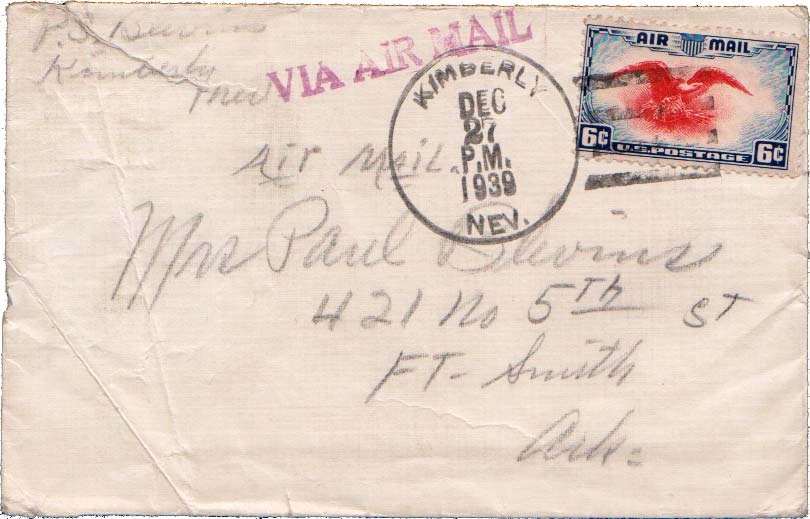 P.S. Blevins
Kimberly
Nev
VIA AIR MAIL
KIMBERLY
DEC
27
P.M.
1939
NEV.
AIR MAIL
6¢ U.S. POSTAGE 6¢
Air Mail
Mrs Paul Blevins
421 No 5Th St
FT- Smith
Ark-